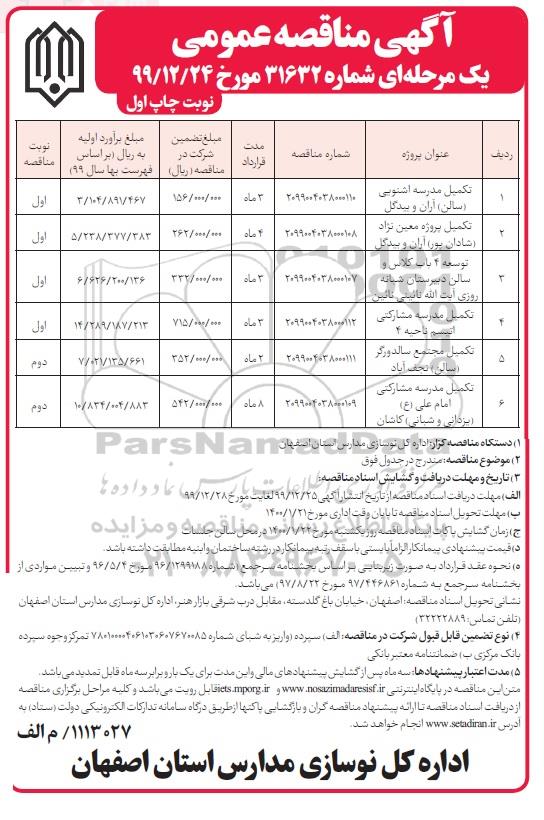 آگهی مناقصه عمومی
یک مرحله‌ای شماره ۳۱۶۳۲ مورخ ۹۹/۱۲/۲۴
نوبت چاپ اول
ردیف عنوان پروژه شماره مناقصه مدت قرارداد مبلغ تضمین شرکت در مناقصه (ریال) مبلغ برآورد اولیه به ریال (بر اساس فهرست بها سال ۹۹) نوبت مناقصه
۱ تکمیل مدرسه اشنویی (سالن) آران و بیدگل ۲۰۹۹۰۰۴۰۳۸۰۰۰۱۱۰ ۳ ماه ۱۵۶/۰۰۰/۰۰۰ ۳/۱۰۴/۸۹۱/۴۶۷ اول
۲ تکمیل پروژه معین نژاد (شادان پور) آران و بیدگل ۲۰۹۹۰۰۴۰۳۸۰۰۰۱۰۸ ۴ ماه ۲۶۲/۰۰۰/۰۰۰ ۵/۲۳۸/۳۷۷/۳۸۳ اول
۳ توسعه ۴ باب کلاس و سالن دبیرستان شبانه روزی آیت الله نائینی نائین ۲۰۹۹۰۰۴۰۳۸۰۰۰۱۰۷ ۳ ماه ۳۳۲/۰۰۰/۰۰۰ ۶/۶۲۶/۲۰۰/۱۳۶ اول
۴ تکمیل مدرسه مشارکتی اتیسم ناحیه ۴ ۲۰۹۹۰۰۴۰۳۸۰۰۰۱۱۲ ۳ ماه ۷۱۵/۰۰۰/۰۰۰ ۱۴/۲۸۹/۱۸۷/۲۱۳ اول
۵ تکمیل مجتمع سالدورگر (سالن) نجف آباد ۲۰۹۹۰۰۴۰۳۸۰۰۰۱۱۱ ۲ ماه ۳۵۲/۰۰۰/۰۰۰ ۷/۰۲۱/۱۳۵/۶۶۱ دوم
۶ تکمیل مدرسه مشارکتی امام علی (ع) (یزدانی و شبانی) کاشان ۲۰۹۹۰۰۴۰۳۸۰۰۰۱۰۹ ۸ ماه ۵۴۲/۰۰۰/۰۰۰ ۱۰/۸۳۴/۰۰۴/۸۸۳ دوم
۱) دستگاه مناقصه گزار: اداره کل نوسازی مدارس استان اصفهان
۲) موضوع مناقصه: مندرج در جدول فوق
۳) تاریخ و مهلت دریافت و گشایش اسناد مناقصه:
الف) مهلت دریافت اسناد مناقصه از تاریخ انتشار آگهی ۹۹/۱۲/۲۵ لغایت مورخ ۹۹/۱۲/۲۸
ب) مهلت تحویل اسناد مناقصه تا پایان وقت اداری مورخ ۱۴۰۰/۱/۲۱
ج) زمان گشایش پاکات اسناد مناقصه روز یکشنبه مورخ ۱۴۰۰/۱/۲۲ در محل سالن جلسات
د) قیمت پیشنهادی پیمانکار الزاما بایستی با سقف رتبه پیمانکار در رشته ساختمان و ابنیه مطابقت داشته باشد.
ه) نحوه عقد قرارداد به صورت زیربنایی بر اساس بخشنامه سرجمع (شماره ۹۶/۱۲۹۹۱۸۸ مورخ ۹۶/۵/۴ و تبیین مواردی از
بخشنامه سرجمع به شماره ۹۷/۴۴۶۸۶۱ مورخ ۹۷/۸/۲۲) می‌باشد.
نشانی تحویل اسناد مناقصه: اصفهان، خیابان باغ گلدسته، مقابل درب شرقی بازار هنر، اداره کل نوسازی مدارس استان اصفهان
(تلفن تماس: ۳۲۲۲۲۸۸۹)
۴) نوع تضمین قابل قبول شرکت در مناقصه: الف) سپرده (واریز به شبای شماره ۷۸۰۱۰۰۰۰۴۰۶۱۰۳۰۶۰۷۶۷۰۰۸۵ تمرکز وجوه سپرده
بانک مرکزی ب) ضمانتنامه معتبر بانکی
۵) مدت اعتبار پیشنهادها: سه ماه پس از گشایش پیشنهادهای مالی و این مدت برای یک بار و برابر سه ماه قابل تمدید می‌باشد.
متن این مناقصه در پایگاه اینترنتی www.nosazimadaresisf.ir و iets.mporg.ir قابل رویت می‌باشد و کلیه مراحل برگزاری مناقصه
از دریافت اسناد مناقصه تا ارائه پیشنهاد مناقصه گران و بازگشایی پاکتها از طریق درگاه سامانه تدارکات الکترونیکی دولت (ستاد) به
آدرس www.setadiran.ir انجام خواهد شد.
۱۱۱۳۰۲۷/ م الف
اداره کل نوسازی مدارس استان اصفهان